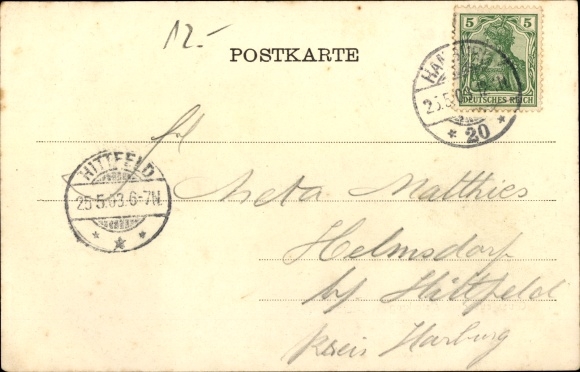 12.-
POSTKARTE
5 5
DEUTSCHES REICH
HAMBURG
25.5.03
* 20 *
HITTFELD
25.5.03.6-7N.
Frl
Meta Matthies
Helmsdorf
bf. Hittfeld
Kreis Harburg